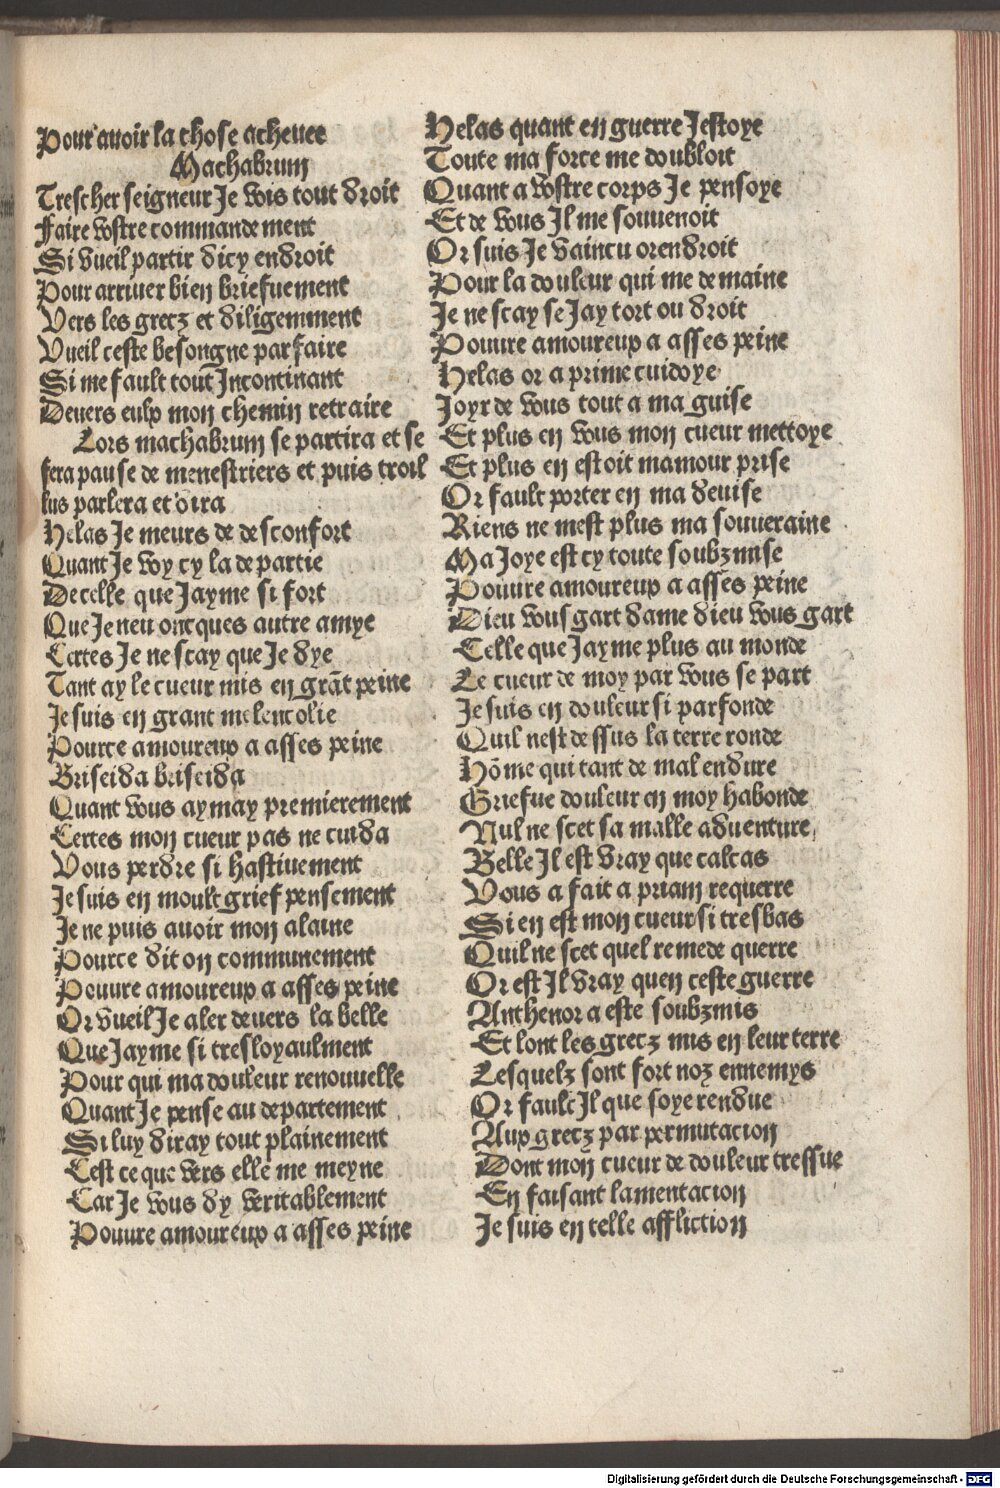 Pour auoir la chose acheuee
Machabrum
Trescher seigneur Je vois tout droit
Faire vostre commandement
Si vueil partir dicy endroit
Pour arriuer bien briefuement
Vers les grecz et diligemment
Vueil ceste besongne parfaire
Si me fault tout Incontinant
Deuers eulx mon chemin retraire
Lors machabrum se partira et se
fera pause de menestriers et puis troil
lus parlera et dira
Helas Je meurs de desconfort
Quant Je voy cy la departie
De celle que Jayme si fort
Que Je neu oncques autre amye
Certes Je ne scay que Je dye
Tant ay le cueur mis en grāt peine
Je suis en grant melencolie
Pource amoureux a asses peine
Briseida briseida
Quant vous aymay premierement
Certes mon cueur pas ne cuida
Vous perdre si hastiuement
Je suis en moult grief pensement
Je ne puis auoir mon alaine
Pource dit on communement
Pouure amoureux a asses peine
Or vueil Je aler deuers la belle
Que Jayme si tresloyaulment
Pour qui ma douleur renouuelle
Quant Je pense au departement
Si luy diray tout plainement
Cest ce que vers elle me meyne
Car Je vous dy veritablement
Pouure amoureux a asses peine
Helas quant en guerre Jestoye
Toute ma force me doubloit
Quant a vostre corps Je pensoye
Et de vous Il me souuenoit
Or suis Je vaincu orendroit
Pour la douleur qui me demaine
Je ne scay se Jay tort ou droit
Pouure amoureux a asses peine
Helas or a prime cuidoye
Joyr de vous tout a ma guise
Et plus en vous mon cueur mettoye
Et plus en estoit mamour prise
Or fault porter en ma deuise
Riens ne mest plus ma souueraine
Ma Joye est cy toute soubzmise
Pouure amoureux a asses peine
Dieu vous gart dame dieu vous gart
Celle que Jayme plus au monde
Le cueur de moy par vous se part
Je suis en douleur si parfonde
Quil nest dessus la terre ronde
Hōme qui tant de mal endure
Griefue douleur en moy habonde
Nul ne scet sa malle aduenture
Belle Il est vray que calcas
Vous a fait a priam requerre
Si en est mon cueur si tresbas
Quil ne scet quel remede querre
Or est Il vray quen ceste guerre
Anthenor a este soubzmis
Et lont les grecz mis en leur terre
Lesquelz sont fort noz ennemys
Or fault Il que soye rendue
Aux grecz par permutacion
Dont mon cueur de douleur tressue
En faisant lamentacion
Je suis en telle affliction
Digitalisierung gefördert durch die Deutsche Forschungsgemeinschaft - DFG